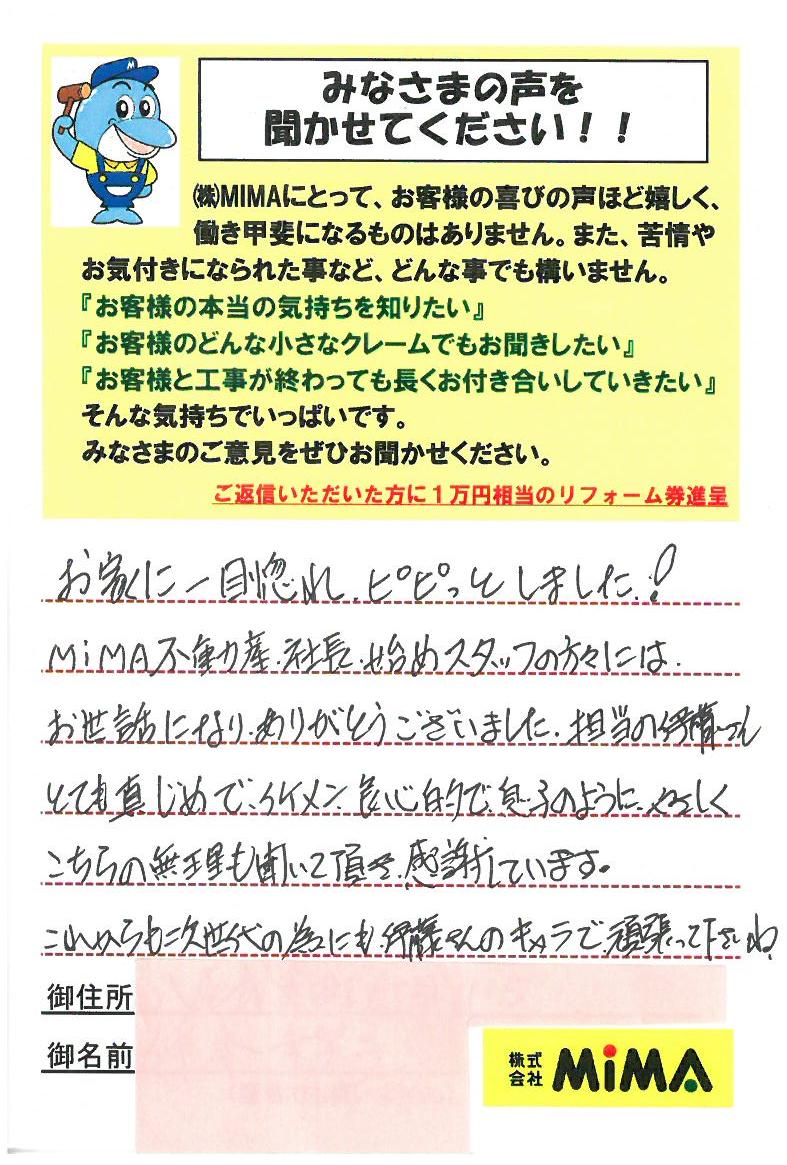 M
みなさまの声を
聞かせてください！！
㈱MIMAにとって、お客様の喜びの声ほど嬉しく、
働き甲斐になるものはありません。また、苦情や
お気付きになられた事など、どんな事でも構いません。
『お客様の本当の気持ちを知りたい』
『お客様のどんな小さなクレームでもお聞きしたい』
『お客様と工事が終わっても長くお付き合いしていきたい』
そんな気持ちでいっぱいです。
みなさまのご意見をぜひお聞かせください。
ご返信いただいた方に１万円相当のリフォーム券進呈
お家に一目惚れ、ピピっとしました！
MiMA不動産、社長、始めスタッフの方々には、
お世話になり、ありがとうございました。担当の伊藤さん
とても真じめで、イケメン、良心的で、息子のように、やさしく
こちらの無理も聞いて頂き、感謝しています。
これからも次世代の為にも、伊藤さんのキャラで、頑張って下さいね
御住所
御名前
株式
会社
MiMA